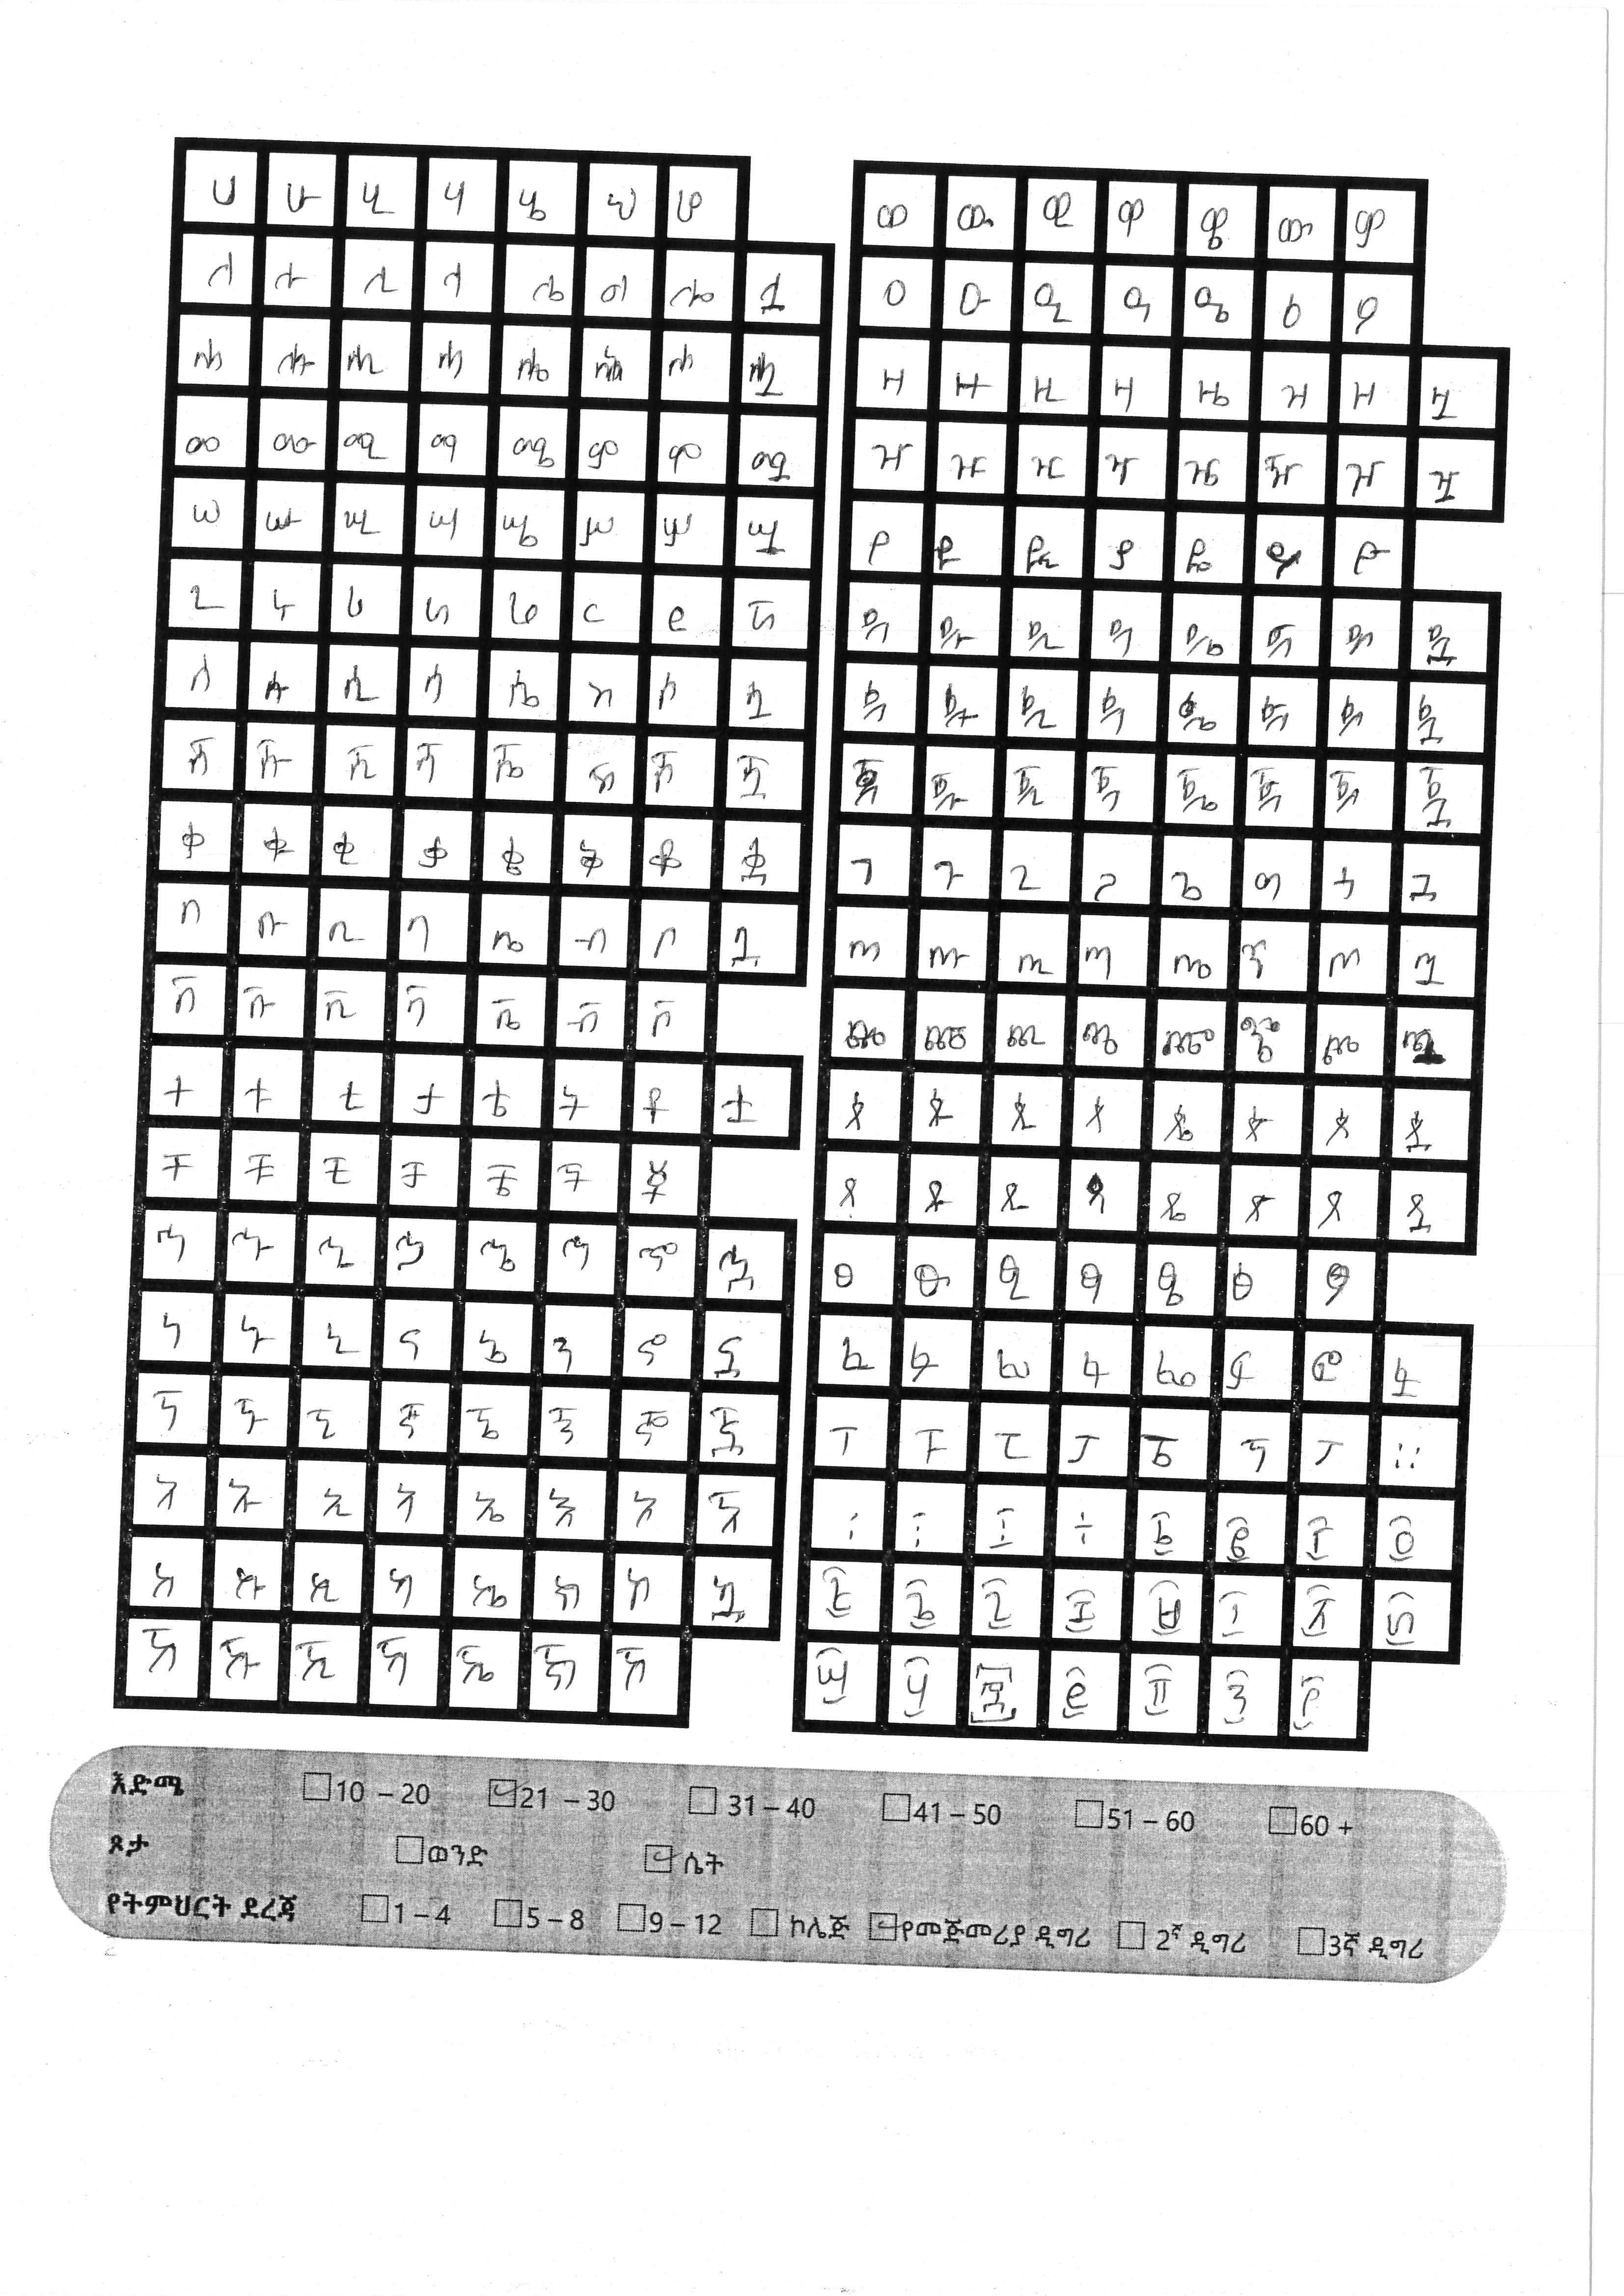 ሀ ሁ ሂ ሃ ሄ ህ ሆ
ለ ሉ ሊ ላ ሌ ል ሎ ሏ
ሐ ሑ ሒ ሓ ሔ ሕ ሖ ሗ
መ ሙ ሚ ማ ሜ ም ሞ ሟ
ሠ ሡ ሢ ሣ ሤ ሥ ሦ ሧ
ረ ሩ ሪ ራ ሬ ር ሮ ሯ
ሰ ሱ ሲ ሳ ሴ ስ ሶ ሷ
ሸ ሹ ሺ ሻ ሼ ሽ ሾ ሿ
ቀ ቁ ቂ ቃ ቄ ቅ ቆ ቋ
በ ቡ ቢ ባ ቤ ብ ቦ ቧ
ቨ ቩ ቪ ቫ ቬ ቭ ቮ
ተ ቱ ቲ ታ ቴ ት ቶ ቷ
ቸ ቹ ቺ ቻ ቼ ች ቾ
ኀ ኁ ኂ ኃ ኄ ኅ ኆ ኋ
ነ ኑ ኒ ና ኔ ን ኖ ኗ
ኘ ኙ ኚ ኛ ኜ ኝ ኞ ኟ
አ ኡ ኢ ኣ ኤ እ ኦ ኧ
ከ ኩ ኪ ካ ኬ ክ ኮ ኳ
ኸ ኹ ኺ ኻ ኼ ኽ ኾ
ወ ዉ ዊ ዋ ዌ ው ዎ
ዐ ዑ ዒ ዓ ዔ ዕ ዖ
ዘ ዙ ዚ ዛ ዜ ዝ ዞ ዟ
ዠ ዡ ዢ ዣ ዤ ዥ ዦ ዧ
የ ዩ ዪ ያ ዬ ይ ዮ
ደ ዱ ዲ ዳ ዴ ድ ዶ ዷ
ጀ ጁ ጂ ጃ ጄ ጅ ጆ ጇ
ገ ጉ ጊ ጋ ጌ ግ ጎ ጓ
ጠ ጡ ጢ ጣ ጤ ጥ ጦ ጧ
ጨ ጩ ጪ ጫ ጬ ጭ ጮ ጯ
ጰ ጱ ጲ ጳ ጴ ጵ ጶ ጷ
ጸ ጹ ጺ ጻ ጼ ጽ ጾ ጿ
ፀ ፁ ፂ ፃ ፄ ፅ ፆ
ፈ ፉ ፊ ፋ ፌ ፍ ፎ ፏ
ፐ ፑ ፒ ፓ ፔ ፕ ፖ ።
፡ ፣ ፩ ፪ ፫ ፬
፭ ፮ ፯ ፰ ፱ ፲ ፳ ፴
፵ ፶ ፷ ፸ ፹ ፺ ፻
እድሜ 10 – 20 21 – 30 31 – 40 41 – 50 51 – 60 60 +
ጾታ ወንድ ሴት
የትምህርት ደረጃ 1 – 4 5 – 8 9 – 12 ኮሌጅ የመጀመሪያ ዲግሪ 2ኛ ዲግሪ 3ኛ ዲግሪ